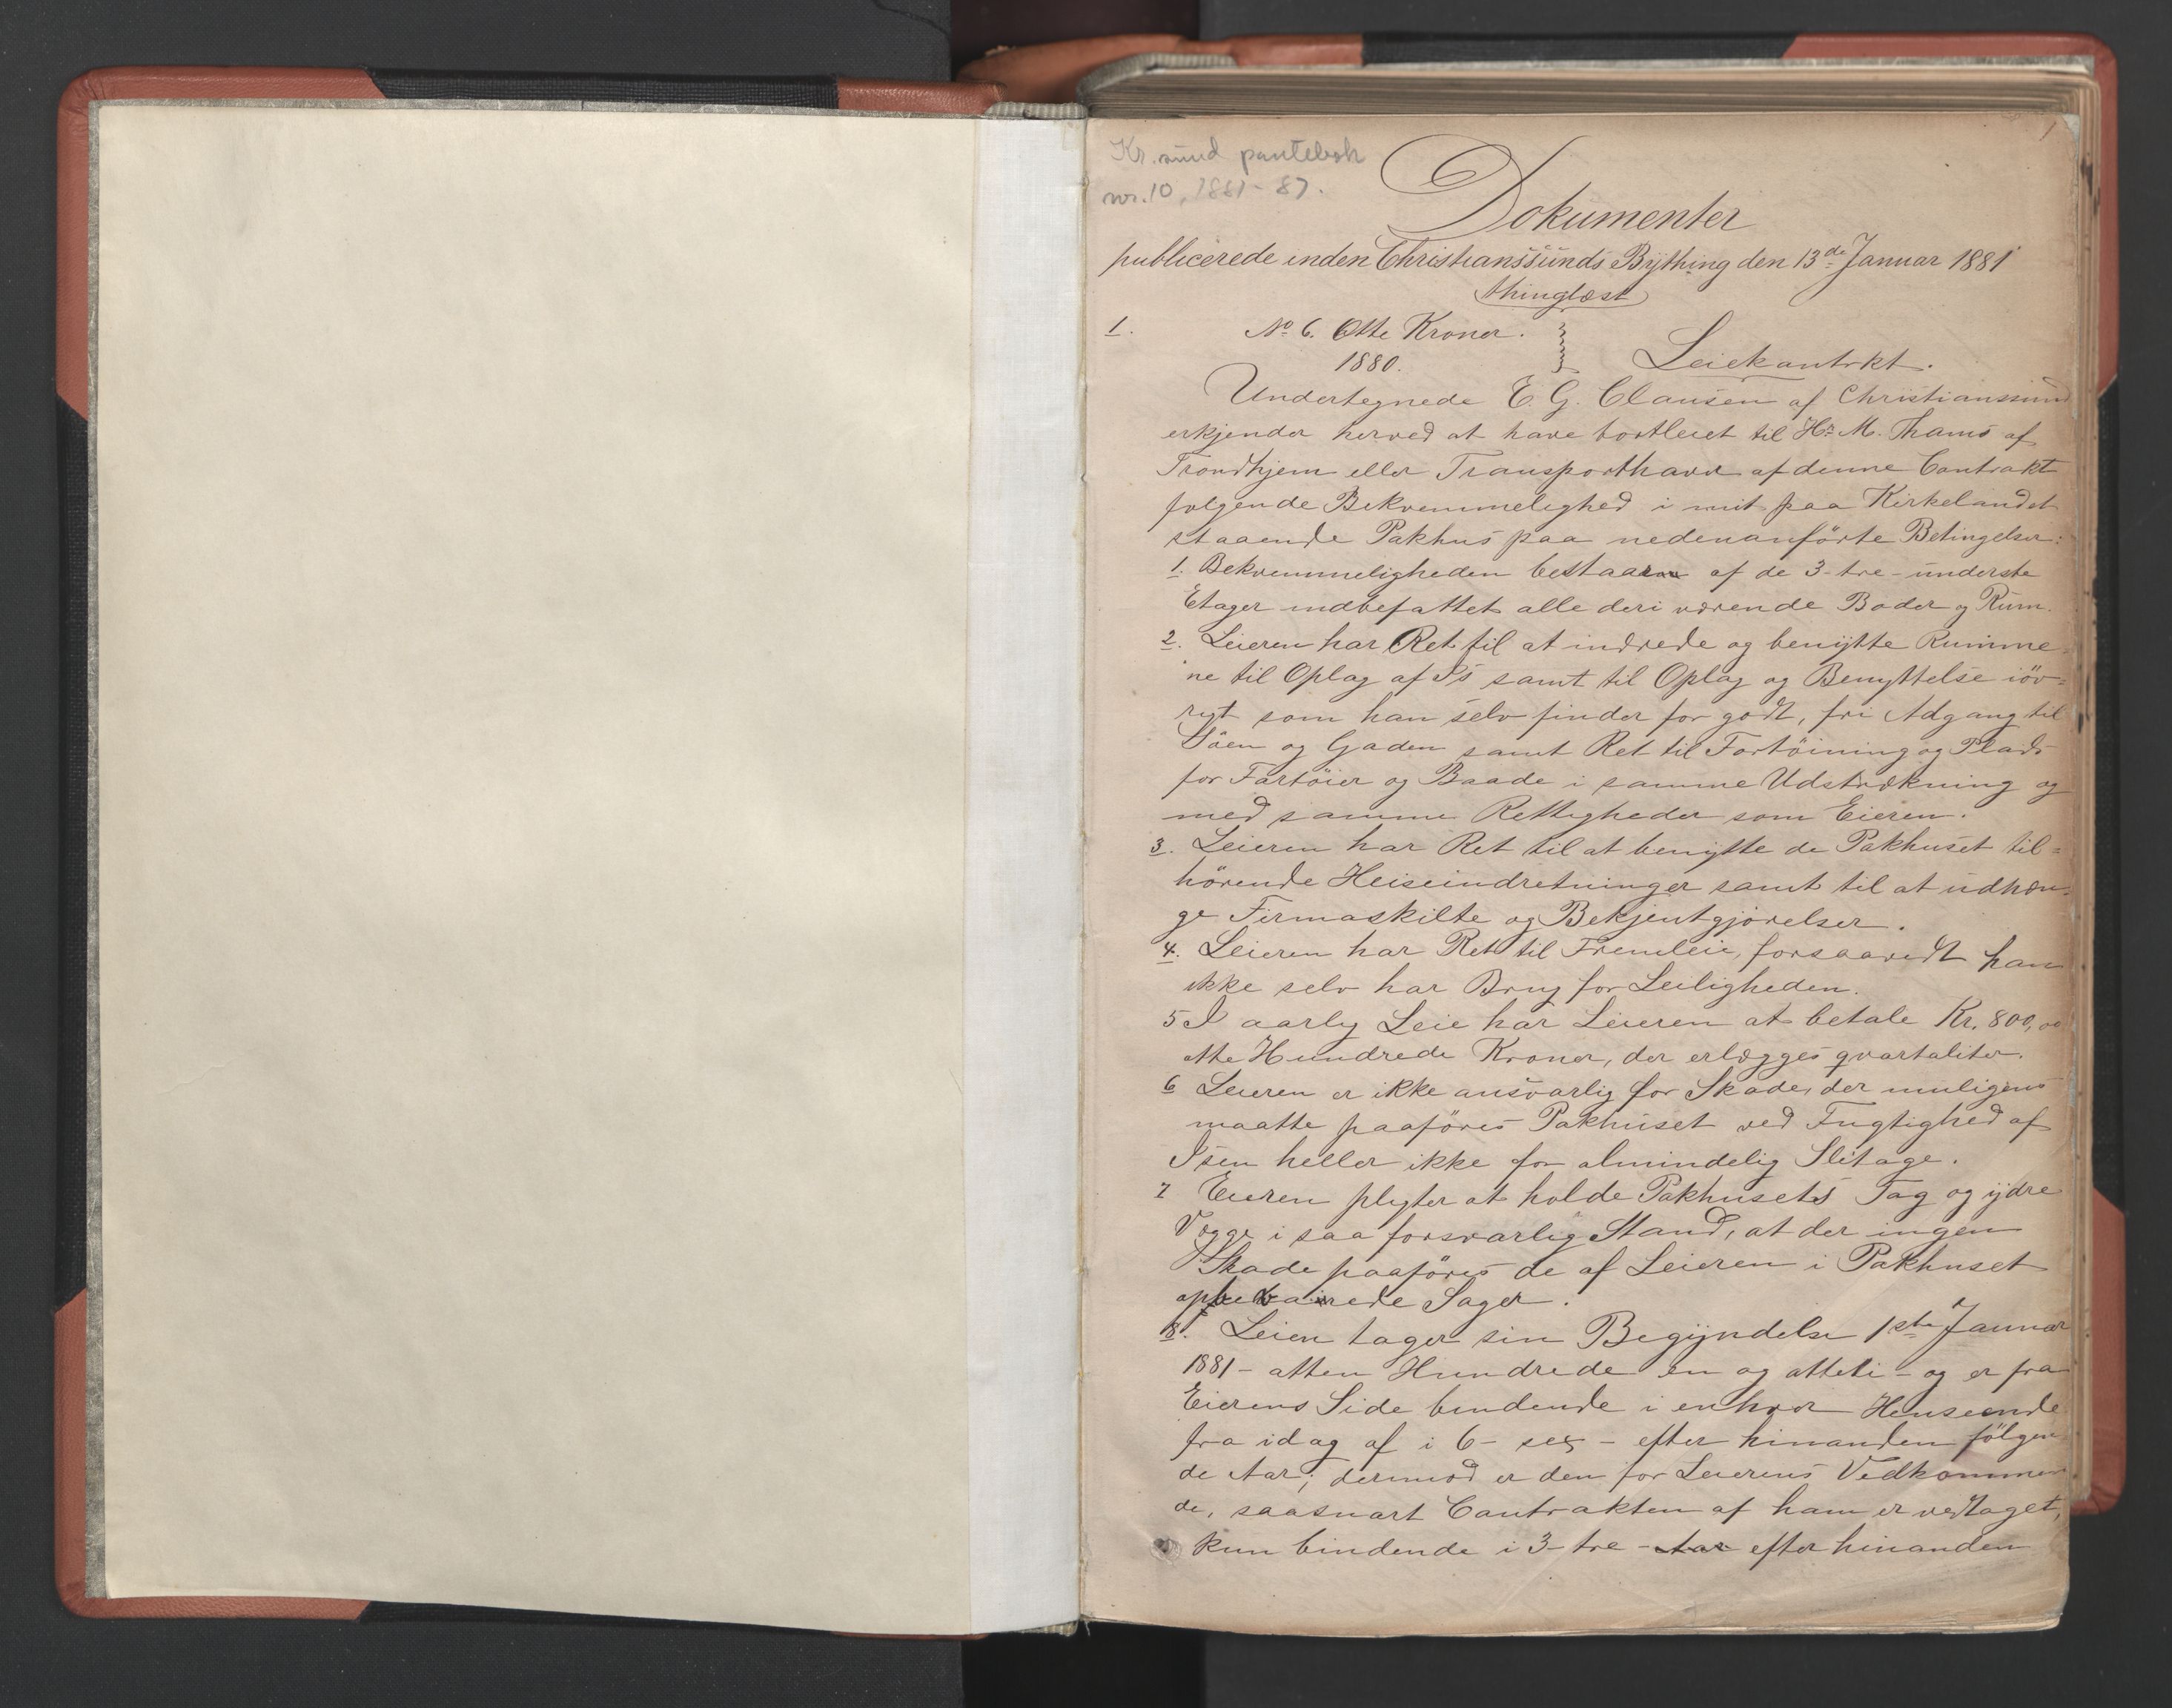 1
Kr.sund pantebok
nr. 10, 1881-87.
Dokumenter
publicerede inden Christianssunds Bything den 13de Januar 1881
thinglæst
1. No 6. Otte Kroner.
1880. Leiekantrkt.
Undertegnede E. G. Clausen af Christianssund
erkjender herved at have bortleiet til Hr. M. Thams af
Trondhjem eller Transporthaver af denne Contrakt
følgende Bekvemmelighed i mit paa Kirkelandet
staaende Pakhus paa nedenanførte Betingelser:
1. Bekvemmeligheden bestaar af de 3-tre-underste
Etager indbefattet alle deri værende Boder og Rum.
2. Leieren har Ret til at indrede og benytte Rumme-
ne til Oplag af Is samt til Oplag og Benyttelse iøv=
rigt som han selv finder for godt, fri Adgang til
Søen og Gaden samt Ret til Fortøining og Plads
for Fartøier og Baade i samme Udstrækning og
med samme Rettigheder som Eieren.
3. Leieren har Ret til at benytte de Pakhuset til=
hørende Heiseindretninger samt til at udhæn-
ge Firmaskilte og Bekjentgjørelser.
4. Leieren har Ret til Fremleie, forsaavidt han
ikke selv har Brug for Leiligheden.
5 I aarlig Leie har Leieren at betale Kr. 800,00
otte Hundrede Kroner, der erlægges qvartaliter.
6 Leieren er ikke ansvarlig for Skade, der muligens
maatte paaføres Pakhuset ved Fugtighed af
Isen heller ikke for almindelig Slitage.
7 Eieren pligter at holde Pakhusets Tag og ydre
Vægge i saa forsvarlig Stand, at der ingen
Skade paaføres de af Leieren i Pakhuset
opbevarede Sager.
8. Leien tager sin Begyndelse 1ste Januar
1881 - atten Hundrede en og otteti - og er fra
Eierens Side bindende i enhver Henseende
fra idag af i 6 - sex - efter hinanden følgen
de Aar; derimod er den for Leierens Vedkommen
de, saasnart Contrakten af ham er vedtaget,
kun bindende i 3-tre - Aar efter hinanden